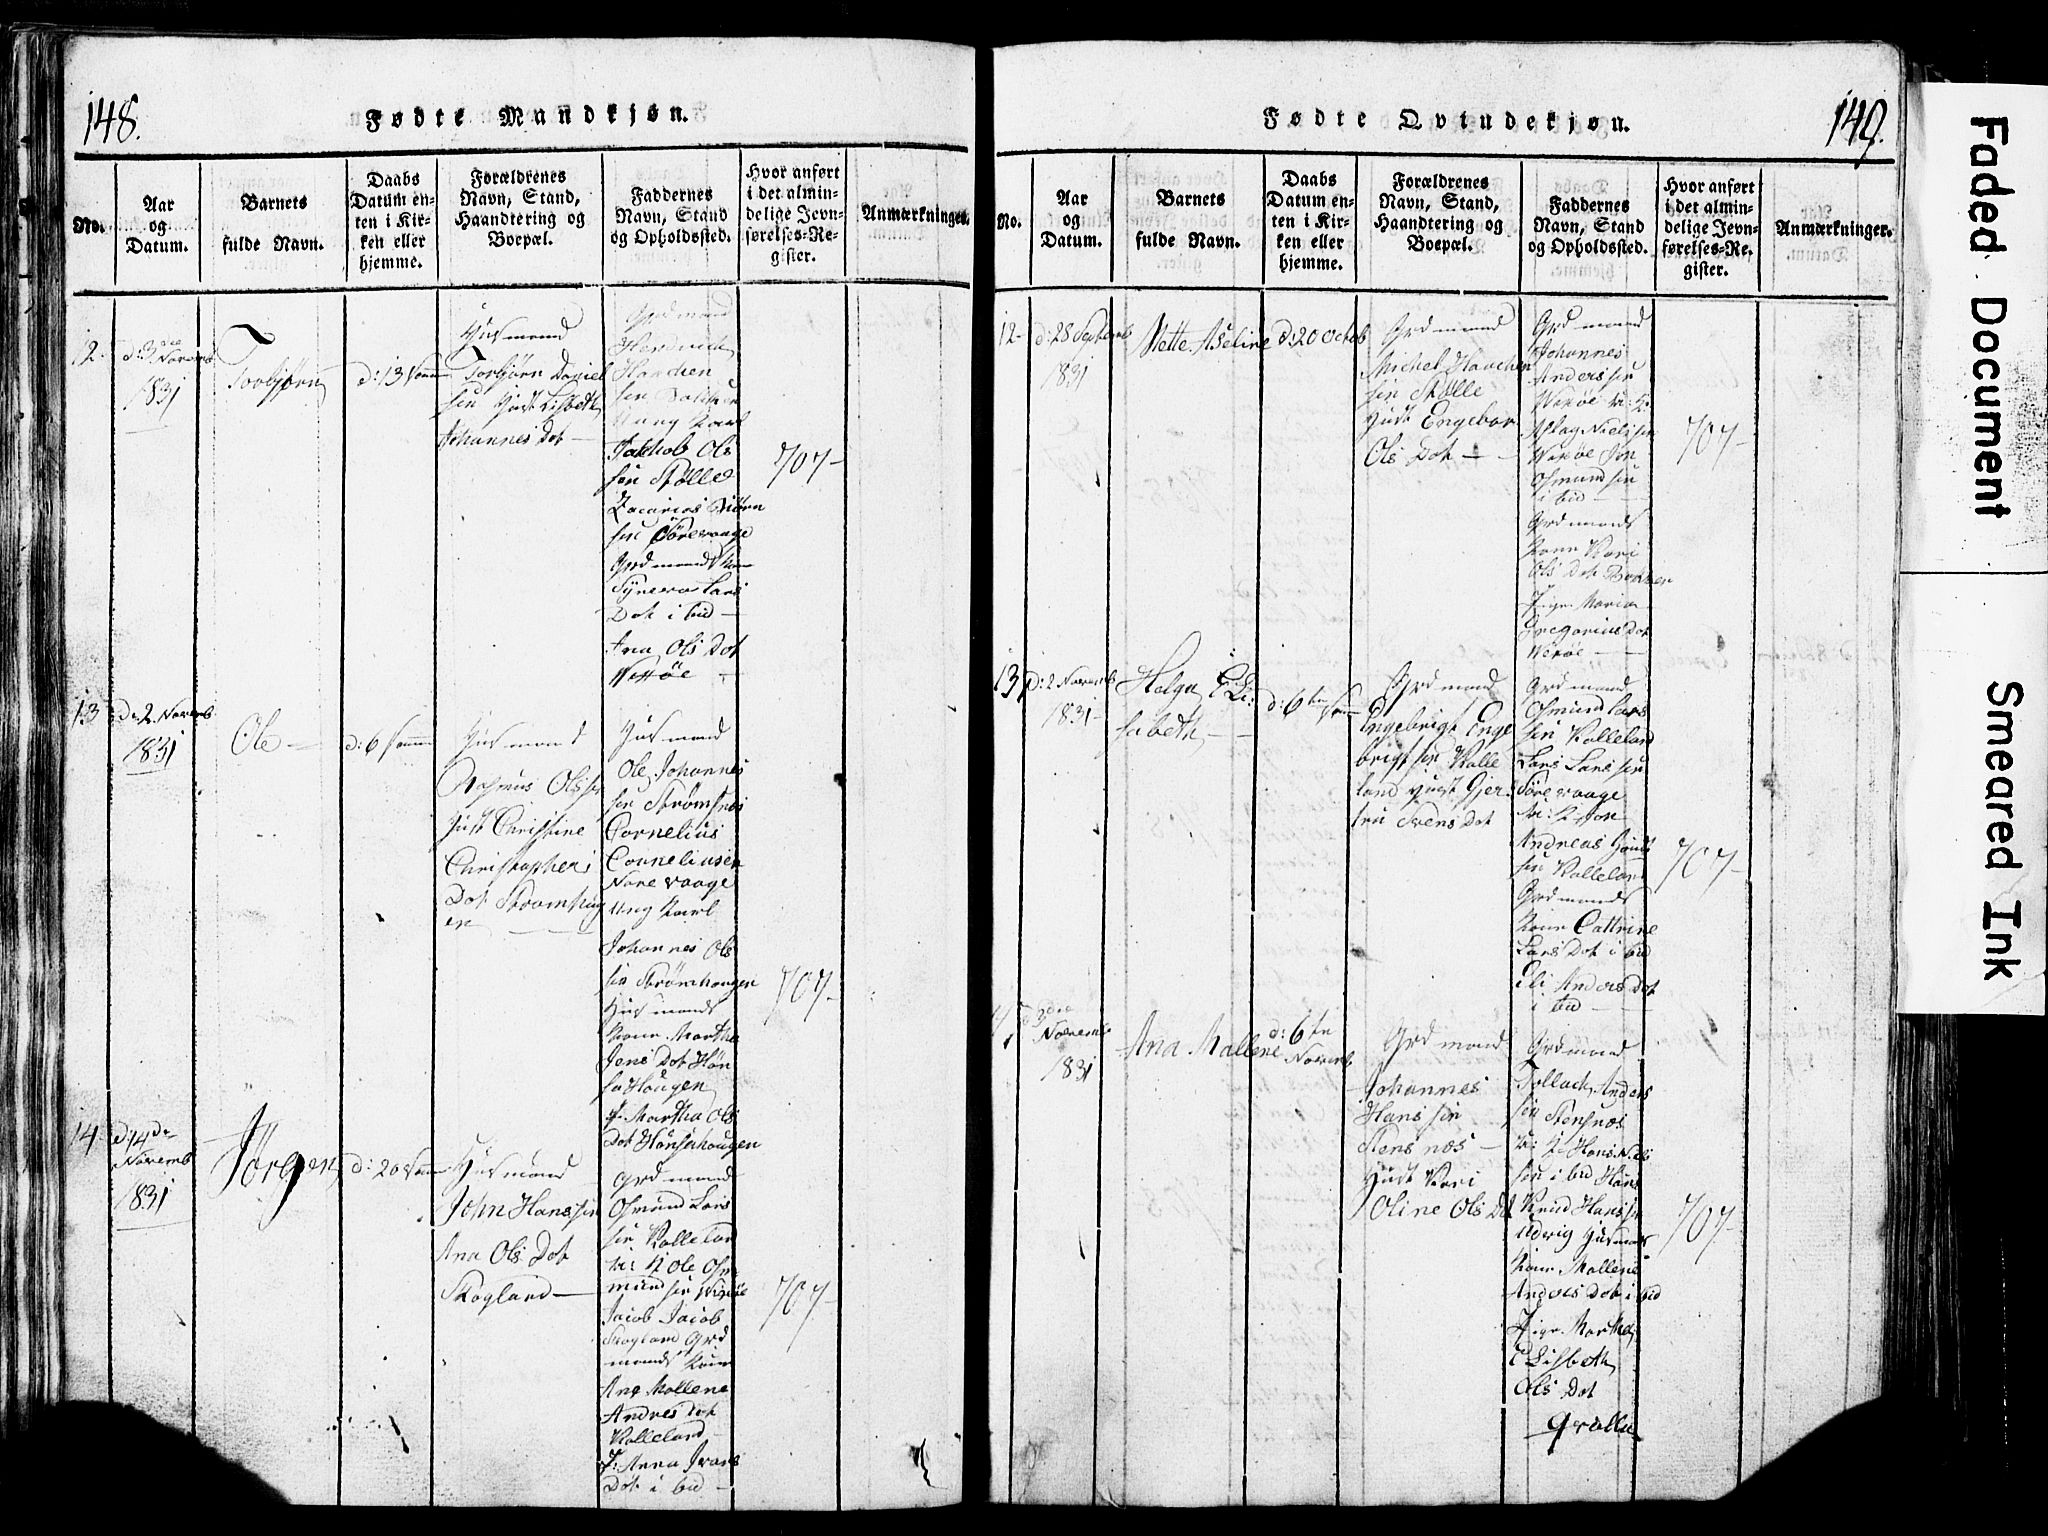 148.
Fødte Mandkjøn.
No.
Aar og Datum.
Barnets fulde Navn.
Daabs Datum enten i Kirken eller hjemme.
Forældrenes Navn, Stand, Haandtering og Boepæl.
Faddernes Navn, Stand og Opholdssted.
Hvor anført i det almindelige Jevnførelses-Register.
Anmærkninger.
12.
d: 3die Novemb
1831
Torbjørn
d: 13
Huusmand
Torbjørn Daniel
sen Hust Lisbeth
Johannes Dot
Grdmand
sen
Ung Karl
Jakkob Ols
sen Stølle
Zacarias Biørn
sen Sørevaage
Grdmands
Syneva Lars
Dot i bid
Ana Ols Dot
13
d: 2 Novemb
1831
Ole
d: 6
Huusmand
Rasmus Ols
Hust Christine
Christopher
Dot Strømhug
en
Huusmand
Ole Johannes
sen Strømsnes
Cornelius
Corneliusen
Norevaage
Ung Karl
Johannes Ols
sen Strømhougen
Huusmands
Kone Martha
Jens Dot Høn
saHougen
P. Martha Ols
Dot Hønsahougen
707
14
d: 14de
Novemb
1831
Jørgen
d: 20
Huusmand
John Hanssen
Ana Ols Dot
Skogland
Grdmand
Osmund Lars
sen Kolleland
u: K Ole Os
mundsen
Jacob Jacob
Skogland Grd
mands Kone
Ane Mallene
Andres Dot
Kolleland
P: Anna Ivars
Dot i bid
707
149.
Fødte Qvindekjøn.
No.
Aar og Datum.
Barnets fulde Navn.
Daabs Datum enten i Kirken eller hjemme.
Forældrenes Navn, Stand, Haandtering og Boepæl.
Faddernes Navn, Stand og Opholdssted.
Hvor anført i det almindelige Jevnførelses-Register.
Anmærkninger.
12
d: 28 Septemb
1831
Mette Aseline
d: 20 Octob
Grdmand
Michel Haachen
sen Stølle
Hust Engebor
Ols Dot
Grdmand
Johannes
Anderssen
u: K:
Aslag Nielssen
Osmundsen
i bid
Grdmands
Kone Kari
Ols Dot
Pige Maria
Gregorius Dot
707
13
d: 2 Novemb
1831
Helga Eli
sabeth
d: 6te
Grdmand
Engebrigt Enge
brigtsen Kolle
land Hust Gjer
tru Svens Dot
Grdmand
Osmund Lars
sen Kolleland
Lars Larssen
Sørevaage
u: K Jon
Andreas
sen Kolleland
Grdmands
Kone Cattrine
Lars Dot i bid
Eli Anders Dot
i bid
707
3die
Novemb
1831
Ana Mallene
d: 6te
Novemb
Grdmand
Johannes
Hanssen
Stensnæs
Hust Kari
Oline Ols Dot
Grdmand
Tollach Anders
sen Stensnæs
u: K Hans Niels
sen i bid
Knud Hanssen
Udvig Huusmands
Kone Mallene
Anders Dot i bid
Pige Martha
Elisbeth
Ols Dot
707
Faded Document
Smeared Ink